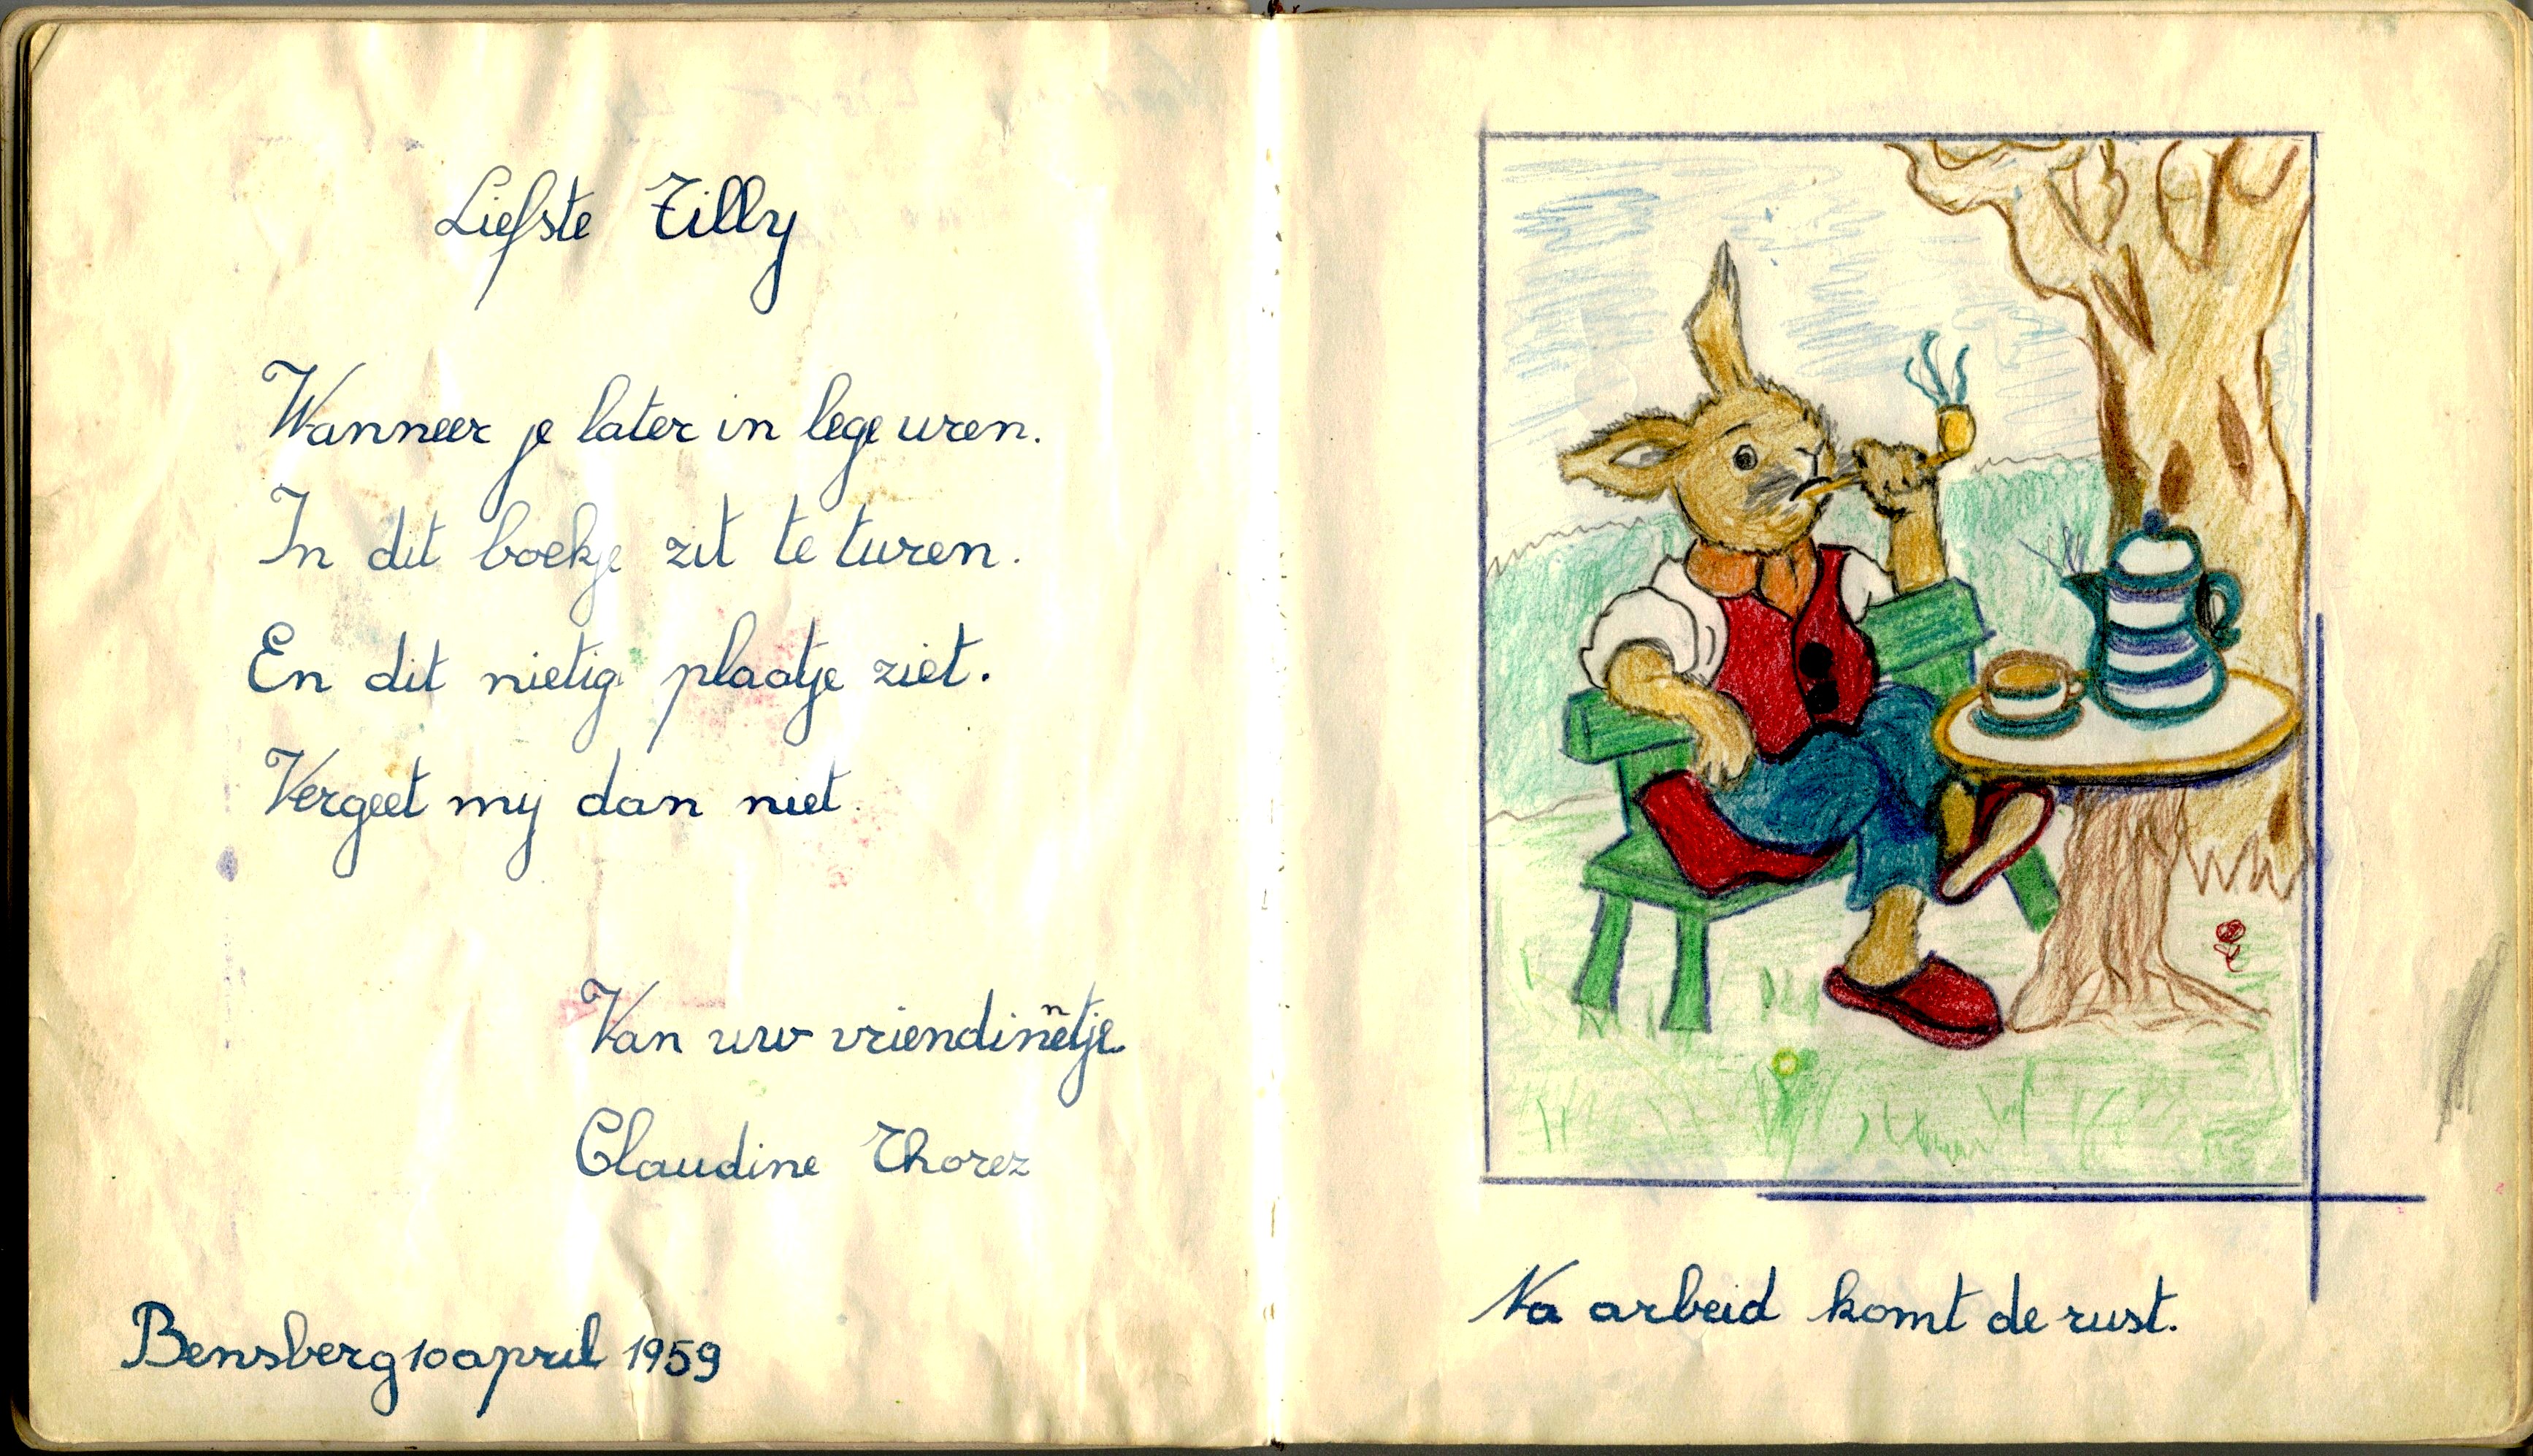 Liefste Tilly
Wanneer je later in lege uren.
In dit boekje zit te turen.
En dit nietig plaatje ziet.
Vergeet mij dan niet.
Van uw vriendinnetje
Claudine Thorez
Bensberg 10 april 1959
Na arbeid komt de rust.